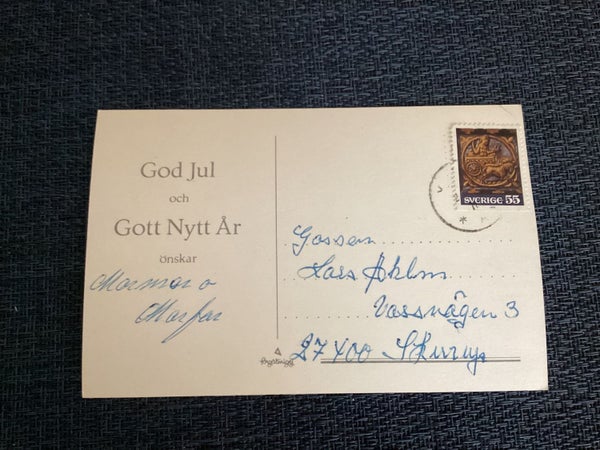 God Jul
och
Gott Nytt År
önskar
Mormor o
Morfar
SVERIGE 55
Gossen
Lars Ahlm
Vassvägen 3
27400 Skurup